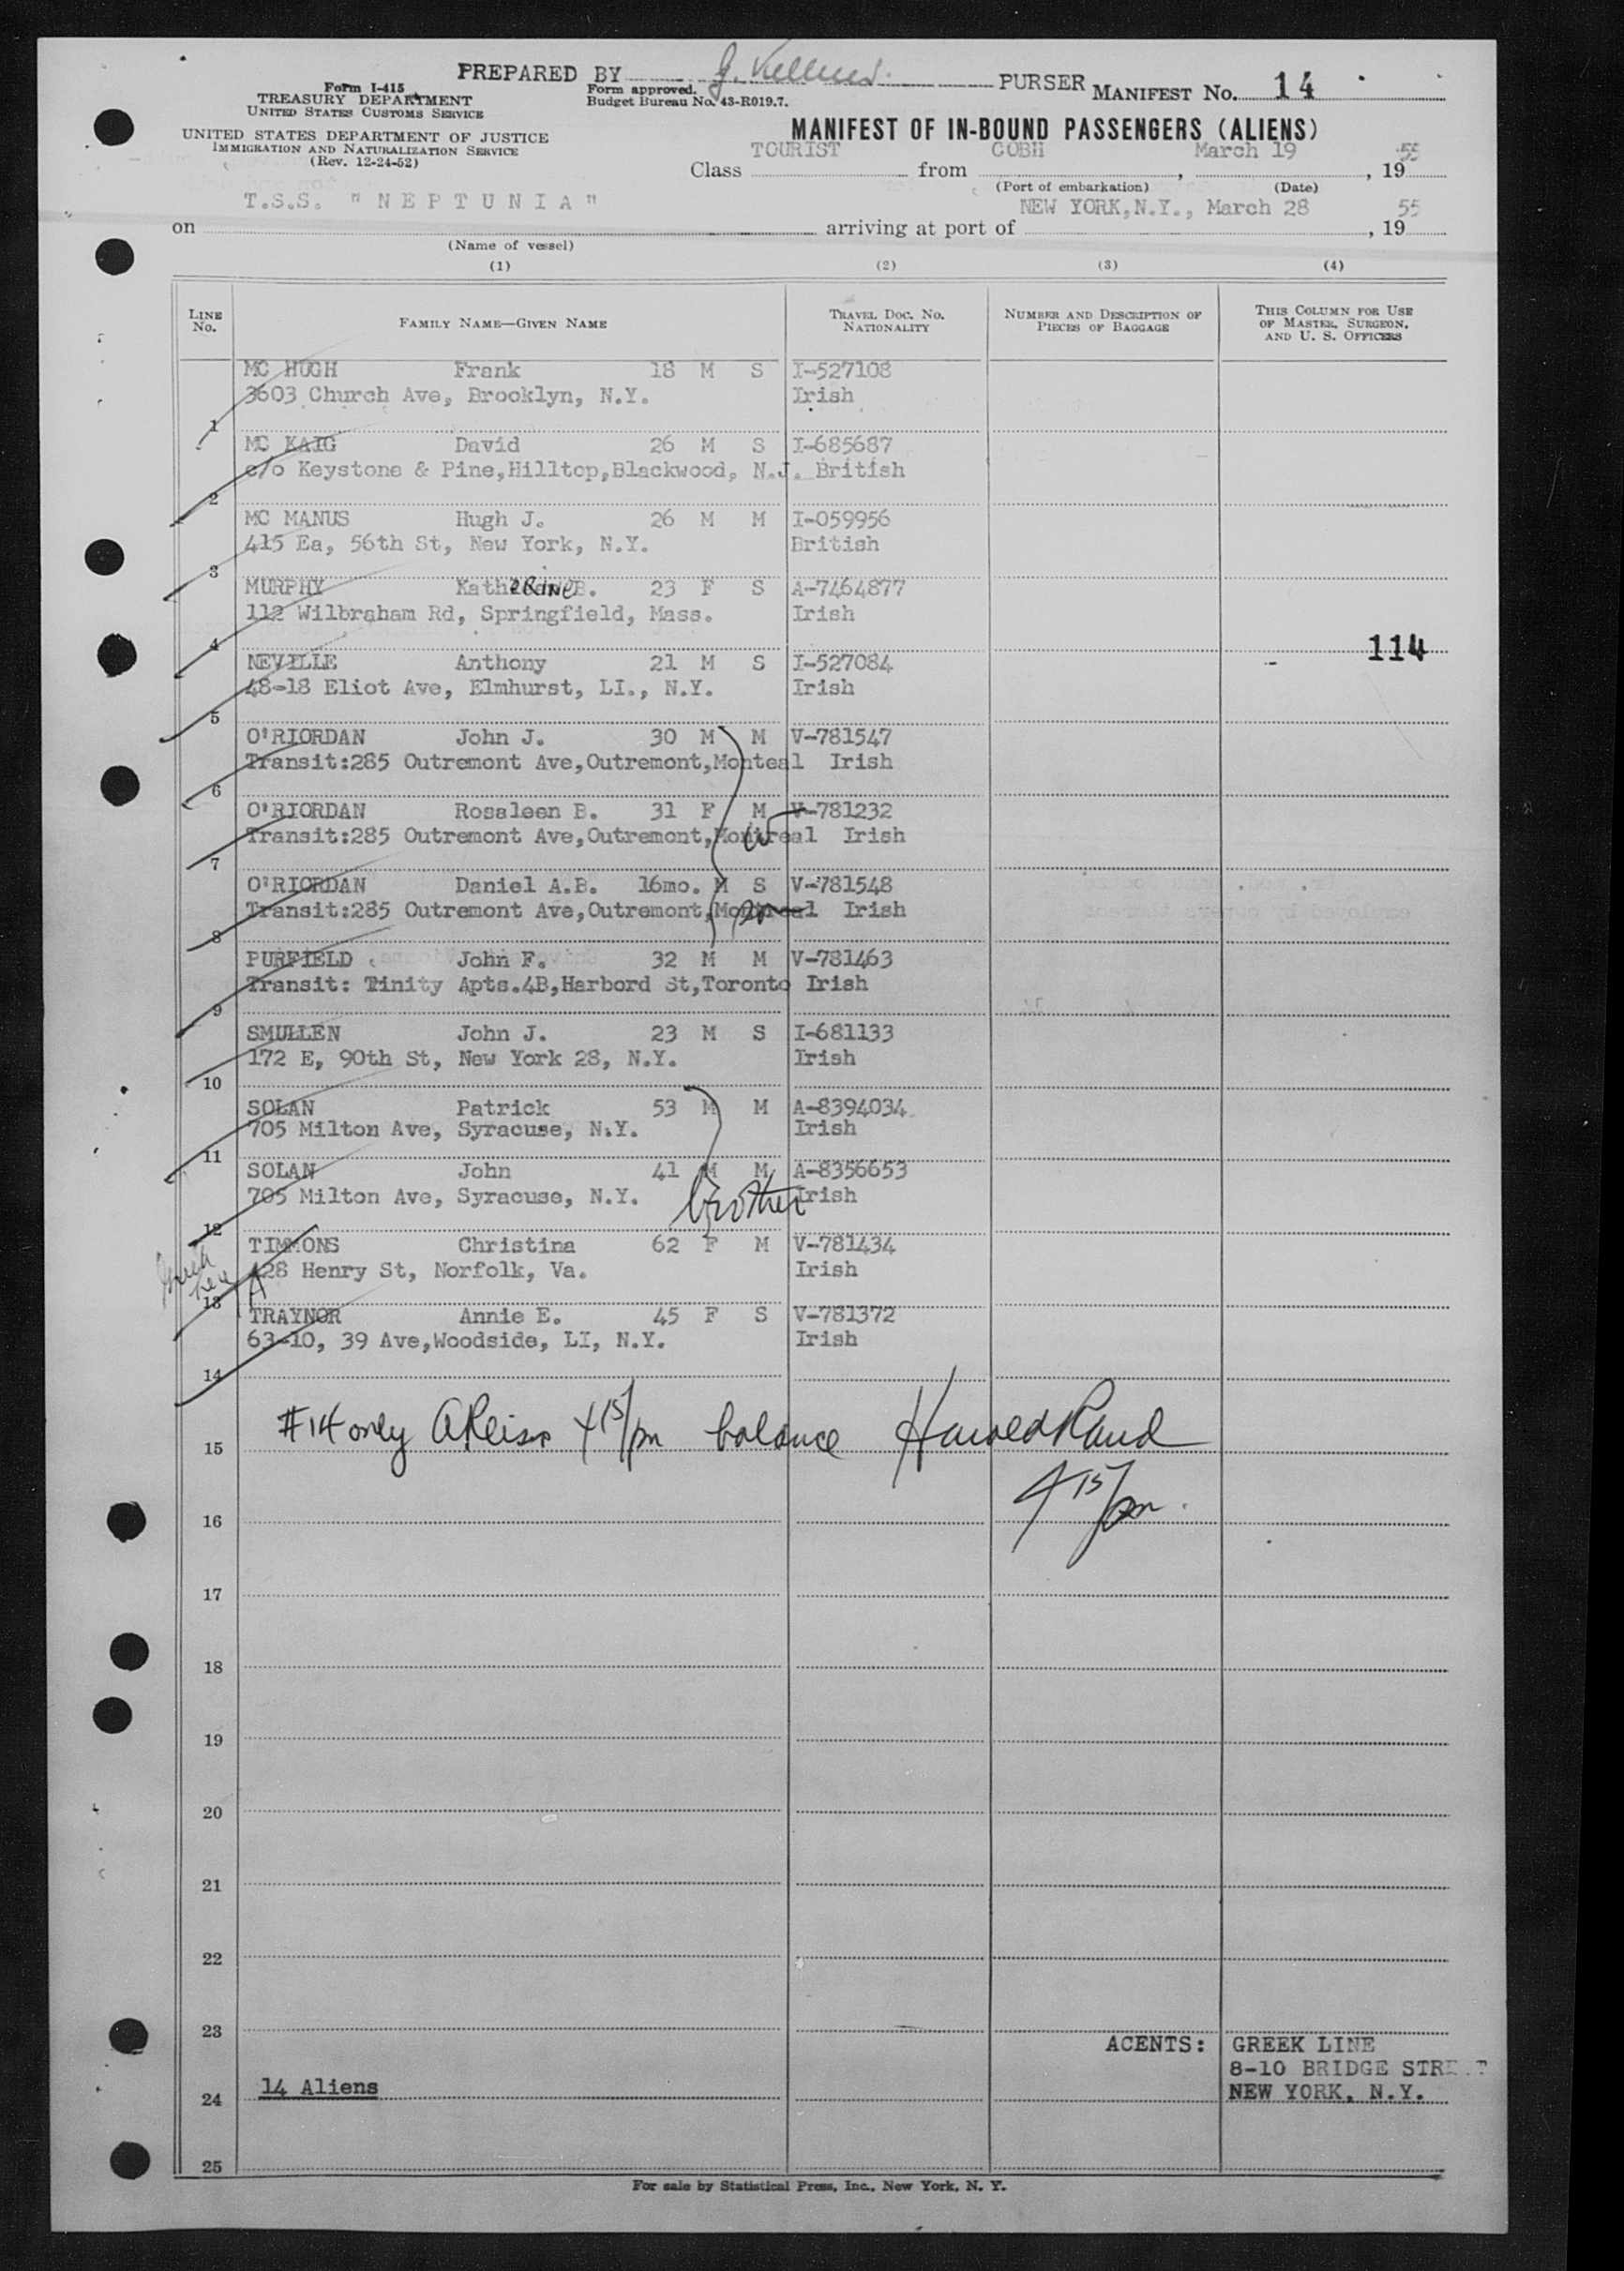 PREPARED BY PURSER MANIFEST NO. 14
Form I-415
TREASURY DEPARTMENT
UNITED STATES CUSTOMS SERVICE
Form approved.
Budget Bureau No. 43-R019.7.
UNITED STATES DEPARTMENT OF JUSTICE
IMMIGRATION AND NATURALIZATION SERVICE
(Rev. 12-24-52)
MANIFEST OF IN-BOUND PASSENGERS (ALIENS)
Class TOURIST from COBH, March 19, 1955
(Port of embarkation) (Date)
on T.S.S. "NEPTUNIA" arriving at port of NEW YORK, N.Y., March 28, 1955
(Name of vessel)
(1) (2) (3) (4)
LINE No. FAMILY NAME—GIVEN NAME TRAVEL DOC. NO. NATIONALITY NUMBER AND DESCRIPTION OF PIECES OF BAGGAGE THIS COLUMN FOR USE OF MASTER, SURGEON, AND U. S. OFFICERS
MC HUGH Frank 18 M S I-527108
3603 Church Ave, Brooklyn, N.Y. Irish
1
MC KAIG David 26 M S I-685687
c/o Keystone & Pine,Hilltop,Blackwood, N.J. British
2
MC MANUS Hugh J. 26 M M I-059956
415 Ea, 56th St, New York, N.Y. British
3
MURPHY Katherine B. 23 F S A-7464877
112 Wilbraham Rd, Springfield, Mass. Irish
4 114
NEVILLE Anthony 21 M S I-527084
48-18 Eliot Ave, Elmhurst, LI., N.Y. Irish
5
O'RIORDAN John J. 30 M M V-781547
Transit:285 Outremont Ave,Outremont,Monteal Irish
6
O'RIORDAN Rosaleen B. 31 F M V-781232
Transit:285 Outremont Ave,Outremont,Montreal Irish
W
7
O'RIORDAN Daniel A.B. 16mo. M S V-781548
Transit:285 Outremont Ave,Outremont,Montreal Irish
8
PURFIELD John F. 32 M M V-781463
Transit: Tinity Apts.4B,Harbord St,Toronto Irish
9
SMULLEN John J. 23 M S I-681133
172 E, 90th St, New York 28, N.Y. Irish
10
SOLAN Patrick 53 M M A-8394034
705 Milton Ave, Syracuse, N.Y. Irish
11
SOLAN John 41 M M A-8356653
705 Milton Ave, Syracuse, N.Y. Irish
brother
12
TIMMONS Christina 62 F M V-781434
428 Henry St, Norfolk, Va. Irish
13
TRAYNOR Annie E. 45 F S V-781372
63-10, 39 Ave,Woodside, LI, N.Y. Irish
14
15 #14 only AReiss 4 15/pm balance Harold Rand
4 15/pm
16
17
18
19
20
21
22
23
ACENTS: GREEK LINE
8-10 BRIDGE STREET
24 14 Aliens NEW YORK, N.Y.
25
For sale by Statistical Press, Inc., New York, N. Y.